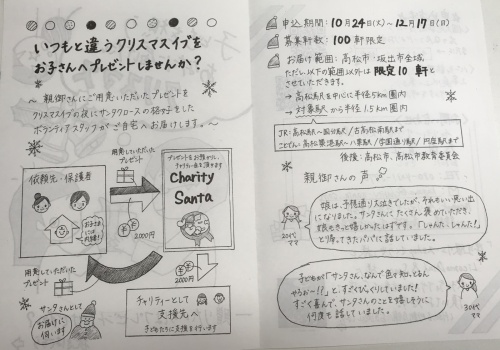 いつもと違うクリスマスイブを
お子さんへプレゼントしませんか？
～ 親御さんにご用意いただいたプレゼントを
クリスマスイブの夜にサンタクロースの格好をした
ボランティアスタッフがご自宅へお届けします。～
依頼先・保護者
お子さまには
内緒！
用意していただいた
プレゼント
2000円
プレゼントをお預かり、
チャリティー金を頂きます
Charity
Santa
用意していただいた
プレゼント
2000円
サンタさんとして
お届けに
伺います
チャリティーとして
支援先へ
子どもたちに支援を行います
申込期間：10月24日(火)～12月17日(日)
募集軒数：100軒限定
お届け範囲：高松市・坂出市全域
ただし、以下の範囲以外は限定10軒と
させていただきます。
→ 高松駅を中心に半径5km圏内
→ 対象駅から半径1.5km圏内
JR：高松駅～国分駅／古高松南駅まで
ことでん：高松築港駅～八栗駅／学園通り駅／円座駅まで
後援：高松市、高松市教育委員会
親御さんの声
娘は、予想通り大泣きでしたが、それもいい思い出
になりました。サンタさんにたくさん褒めていただき、
娘もきっと嬉しかったはずです。「しゃんた、しゃんた！」
と帰ってきたパパに話していました。
20代
ママ
子どもが「サンタさん、なんで色々知っとるん
やろおー！！」と、すごくびっくりしていました！
すごく喜んで、サンタさんのことを嬉しそうに
何度も話していました。
30代
ママ